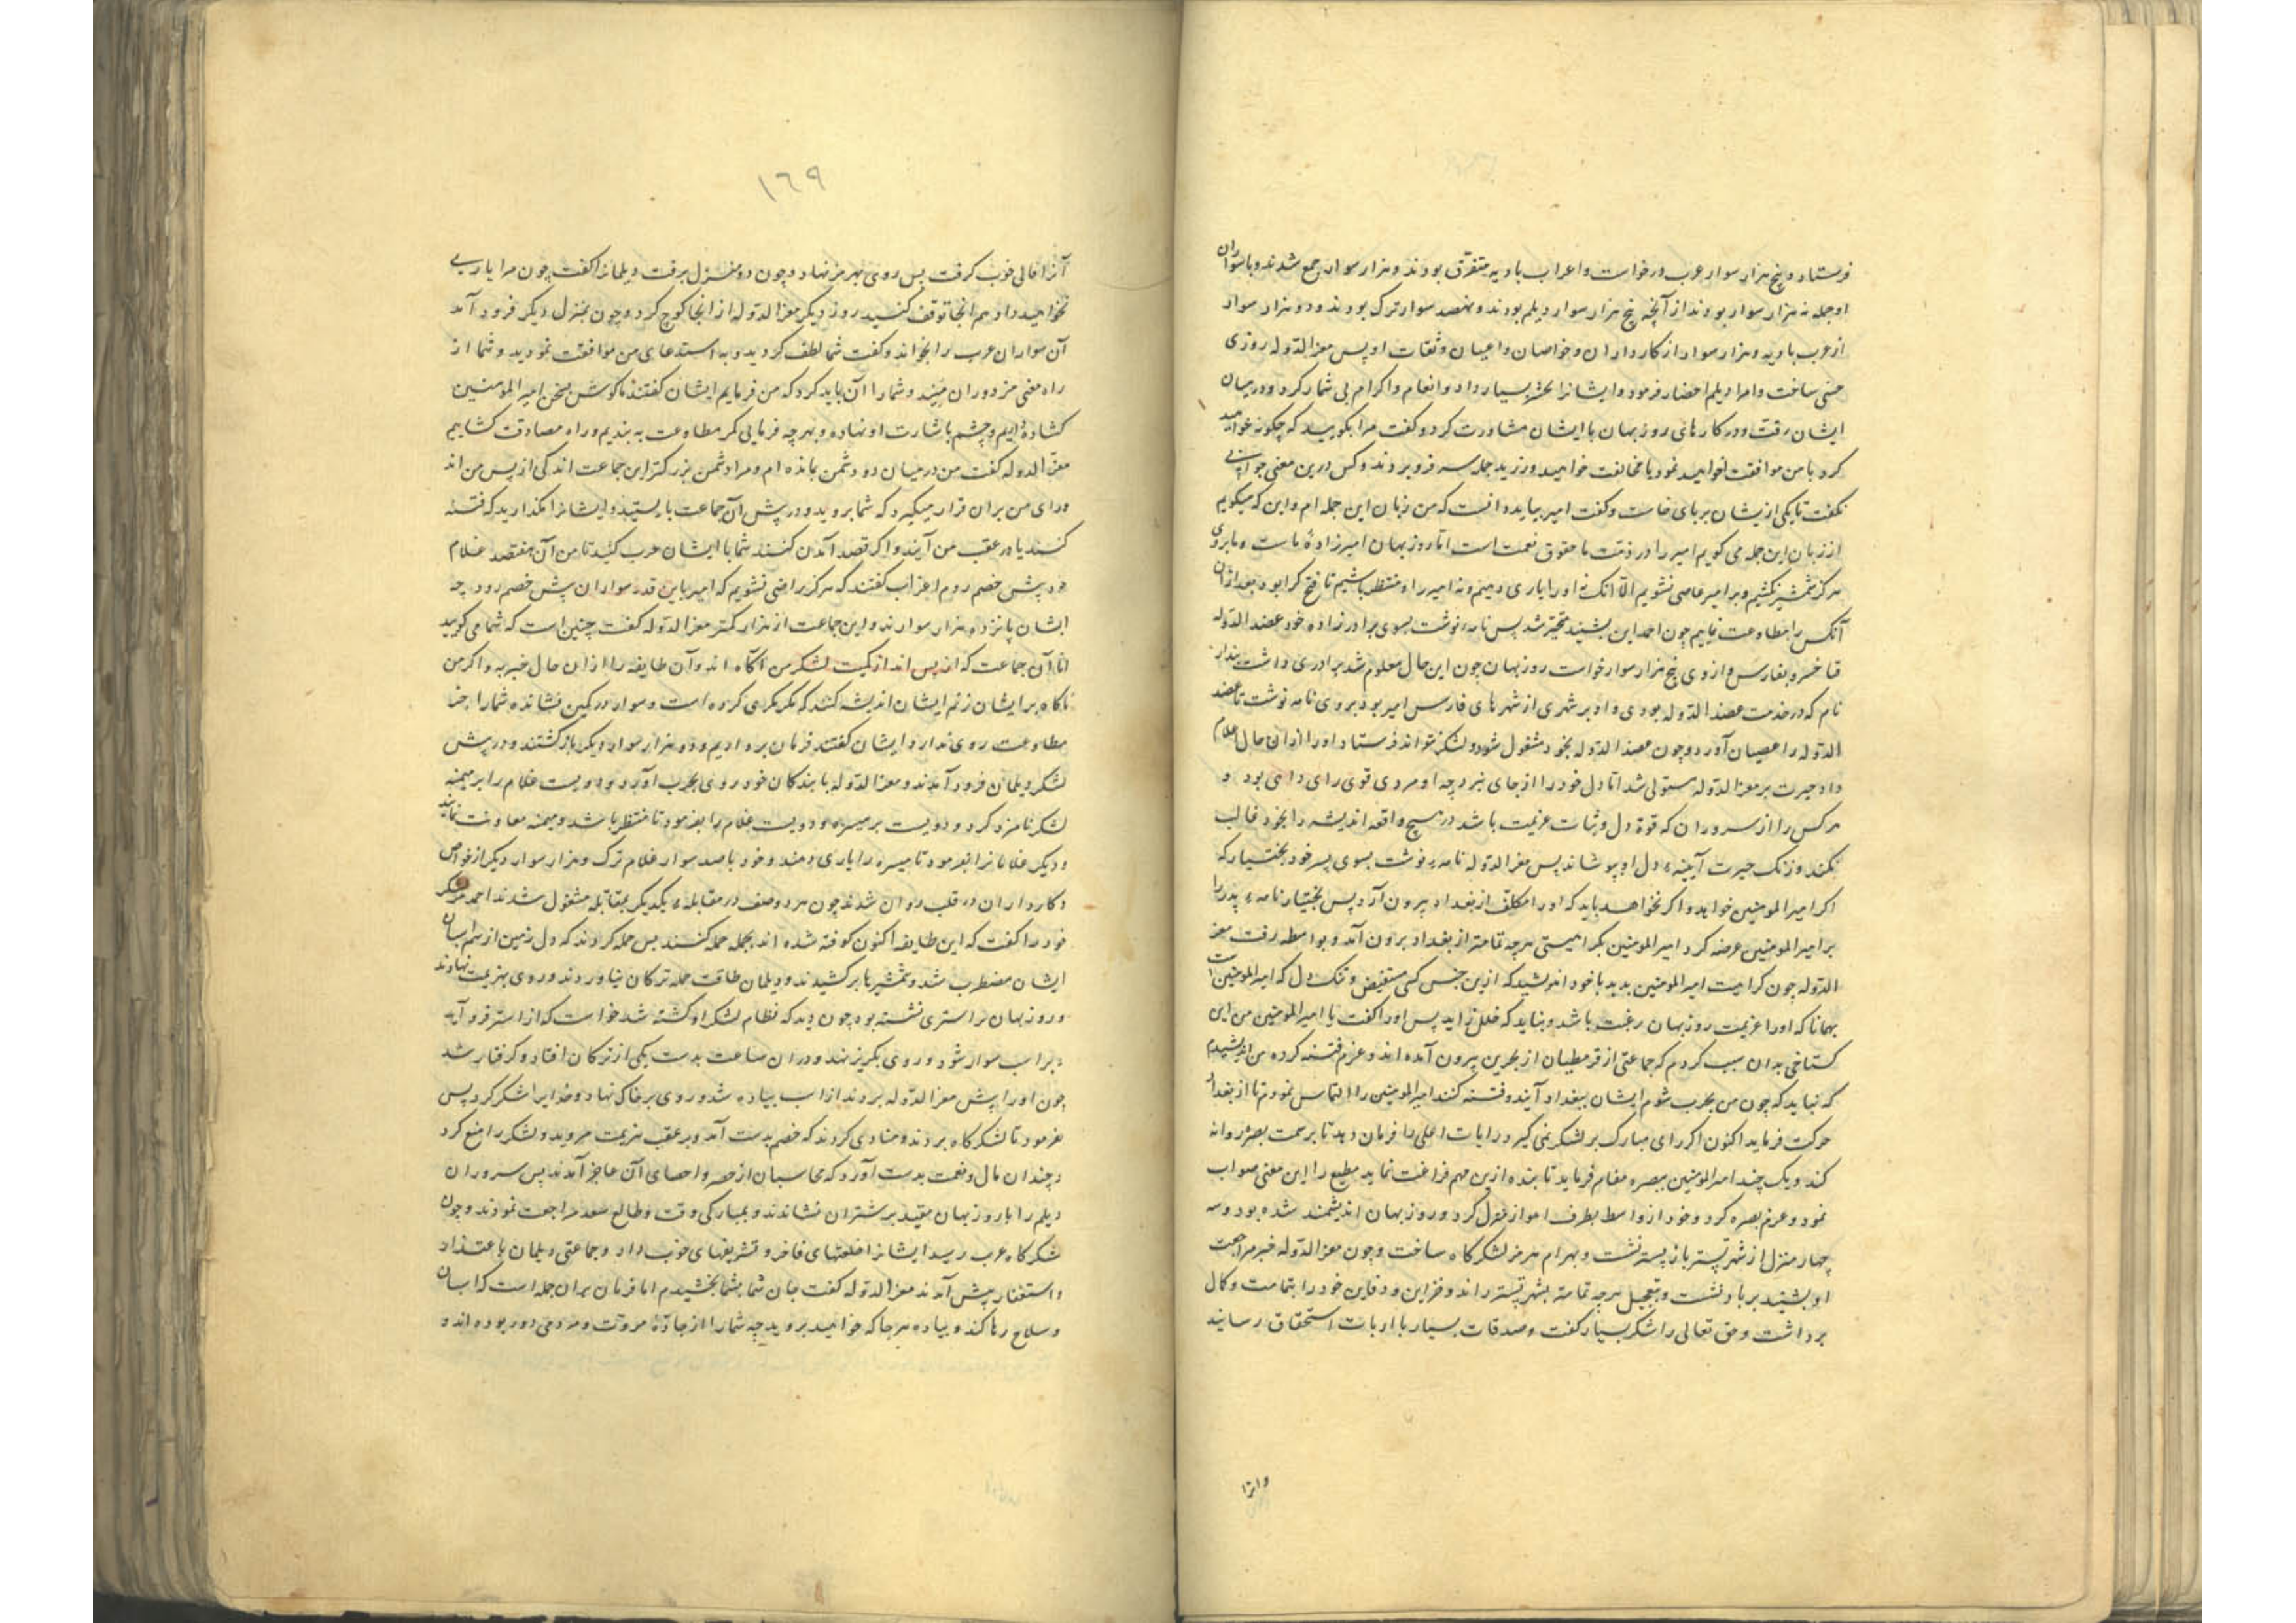 فرستاد و پنج هزار سوار عرب درخواست و اعراب بادیه متفرق بودند و هزار سوار جمع شدند و با سواران
او جمله نه هزار سوار بودند از آنچه پنج هزار سوار دیلم بودند و نهصد سوار ترک بودند و دو هزار سوار
از عرب بادیه و هزار سوار از کارداران و خواصان و اعیان و ثقات او پس معز الدوله روزی
جشنی ساخت و امرا دیلم احضار فرمود و ایشانرا بخشش بسیار داد و انعام و اکرام بی شمار کرد و در میان
ایشان رفت و در کارهای روزبهان با ایشان مشاورت کرد و کفت مرا بکویید که چکونه خواهید
کرد با من موافقت خواهید نمود یا مخالفت خواهید ورزید جمله سر فرو بردند و کس درین معنی جوابی
نکفت تا یکی از یشان بر پای خاست و کفت امیر بباید دانست که من زبان این جمله ام و این که میکویم
از زبان این جمله می کویم امیر را در ذمت ما حقوق نعمت است اما روزبهان امیرزادهٔ ماست و ما بر وی
هرکز شمشیر نکشیم و بر امیر عاصی نشویم الا آنک نه او را یاری دهیم و نه امیر را و منتظر باشیم تا فتح کرا بود بعد ازان
آنکس را مطاوعت نماییم چون احمد این بشنید متحیر شد پس نامه نوشت بسوی برادرزاده خود عضد الدوله
فنا خسرو بفارس و از وی پنج هزار سوار خواست روزبهان چون این حال معلوم شد برادری داشت بندار
نام که در خدمت عضد الدوله بودی و او بر شهری از شهرهای فارس امیر بود بر وی نامه نوشت تا عضد
الدوله را عصیان آورد و چون عضد الدوله بخود مشغول شود و لشکر نتواند فرستاد و او را ازان حال اعلام
داد حیرت بر معز الدوله مستولی شد اما دل خود را از جای نبرد چه او مردی قوی رای داهی بود و
هر کس را از سروران که قوة دل و ثبات عزیمت باشد در هیچ واقعه اندیشه را بخود غالب
نکند و زنک حیرت آیینهٔ دل او نپوشاند پس معز الدوله نامه نوشت بسوی پسر خود بختیار که
اکر امیر المومنین خواهد و اکر نخواهد باید که او را مکلف از بغداد بیرون آرد پس بختیار نامهٔ پدر را
بر امیر المومنین عرضه کرد امیر المومنین بکراهیتی هرچه تمامتر از بغداد برون آمد و بواسطه رفت معز
الدوله چون کراهیت امیر المومنین بدید با خود اندیشید که ازین جنس کسی متقبض و تنک دل که امیر المومنین است
همانا که او را عزیمت روزبهان رغبت باشد و نباید که خلل زاید پس او را کفت یا امیر المومنین من این
کستاخی بدان سبب کردم که جماعتی از قرمطیان از بحرین بیرون آمده اند و عزم فتنه کرده من اندیشیدم
که نباید که چون من بحرب شوم ایشان ببغداد آیند و فتنه کنند امیر المومنین را التماس نمودم تا از بغداد
حرکت فرماید اکنون اکر رای مبارک بر لشکر نمی کیرد رایات اعلی را فرمان دهد تا بر سمت بصره روانه
کند و یک چند امیر المومنین ببصره مقام فرماید تا بنده ازین مهم فراغت نماید مطیع را این معنی صواب
نمود و عزم بصره کرد و خود از واسط بطرف اهواز نزول کرد و روزبهان اندیشمند شده بود و سه
چهار منزل از شهر تستر باز پستر نشست و بهرام هرمز لشکرگاه ساخت و چون معز الدوله خبر مراجعت
او بشنید بر باد نشست و بتعجیل هرچه تمامتر بشهر تستر راند و خزاین و دفاین خود را بتمامت و کمال
برداشت و حق تعالی را شکر بسیار کفت و صدقات بسیار با ارباب استحقاق رسانید
و انرا
١٦٩
آنرا فالی خوب کرفت پس روی بهرمز نهاد و چون دو منزل برفت دیلمانرا کفت چون مرا یاریی
نخواهید داد هم آنجا توقف کنید روز دیکر معز الدوله از انجا کوچ کرد و چون بمنزل دیکر فرود آمد
آن سواران عرب را بخواند و کفت شما لطف کردید و به استدعای من موافقت نمودید و شما از
راه معنی مزدوران منید و شما را آن باید کرد که من فرمایم ایشان کفتند ما کوش بسخن امیر المومنین
کشاده ایم و چشم باشارت او نهاده و بهرچه فرمایی کمر مطاوعت به بندیم و راه مصادقت کشاییم
معز الدوله کفت من در میان دو دشمن بمانده ام و مرا دشمن بزرکتر این جماعت اند کی از پس من اند
و رای من بران قرار میکیرد که شما بروید و در پیش آن جماعت بایستید و ایشانرا نکذارید که فتنه
کنند یا در عقب من آیند و اکر قصد آمدن کنند شما با ایشان حرب کنید تا من آن هفتصد غلام
در پیش خصم روم اعراب کفتند که هرکز راضی نشویم که امیر باین قدر سواران پیش خصم رود چه
ایشان پانزده هزار سوارند و این جماعت از هزار کمتر معز الدوله کفت چنین است که شما می کویید
اما آن جماعت که از پس اند از کمیت لشکر من آکاه اند و آن طایفه را ازان حال خبر نه و اکر من
ناکاه بر ایشان زنم ایشان اندیشه کنند که مکر مکری کرده است و سوار در کمین نشانده شما را جز
مطاوعت روی ندارد ایشان کفتند فرمان بردار یم و دو هزار سوار دیکر باز کشتند و در پیش
لشکر دیلمان فرود آمدند و معز الدوله با بندکان خود روی بحرب آورد و دویست غلام را بر میمنه
لشکر نامزد کرد و دویست بر میسره و دویست غلام را بفرمود تا منتظر باشد و میمنه معاونت نمایند
و دیکر غلامانرا بفرمود تا میسره را یاری دهند و خود با صد سوار غلام ترک و هزار سوار دیکر از خواص
و کارداران در قلب روان شدند چون هر دو صف در مقابلهٔ یکدیکر بمقاتله مشغول شدند احمد لشکر
خود را کفت که این طایفه اکنون کوفته شده اند بجمله حمله کنند پس حمله کردند که دل زمین از سم اسبان
ایشان مضطرب شد و شمشیرها بر کشیدند و دیلمان طاقت حمله ترکان نیاوردند و روی بهزیمت نهادند
و روزبهان بر استری نشسته بود چون دید که نظام لشکر او کشته شد خواست که از استر فرو آید
و بر اسب سوار شود و روی بکریز نهد و در ان ساعت بدست یکی از ترکان افتاد و کرفتار شد
چون او را پیش معز الدوله بردند از اسب پیاده شد و روی بر خاک نهاد و خدایرا شکر کرد پس
بفرمود تا لشکرکاه بردند و منادی کردند که خصم بدست آمد و بر عقب هزیمت مروید و لشکر را منع کرد
و چندان مال و نعمت بدست آورد که محاسبان از حصر و احصای آن عاجز آمدند پس سروران
دیلم را با روزبهان مقید بر شتران نشاندند و بمبارکی وقت و طالع سعد مراجعت نمودند و چون
لشکرکاه عرب رسید ایشانرا خلعتهای فاخر و تشریفهای خوب داد و جماعتی دیلمان باعتذار
و استغفار پیش آمدند معز الدوله کفت جان شما بشما بخشیدم اما فرمان بران جمله است که اسبان
و سلاح رها کند و پیاده هر جا که خواهید بروید چه شما را از جادهٔ مروت و مردمی دور بوده اند و